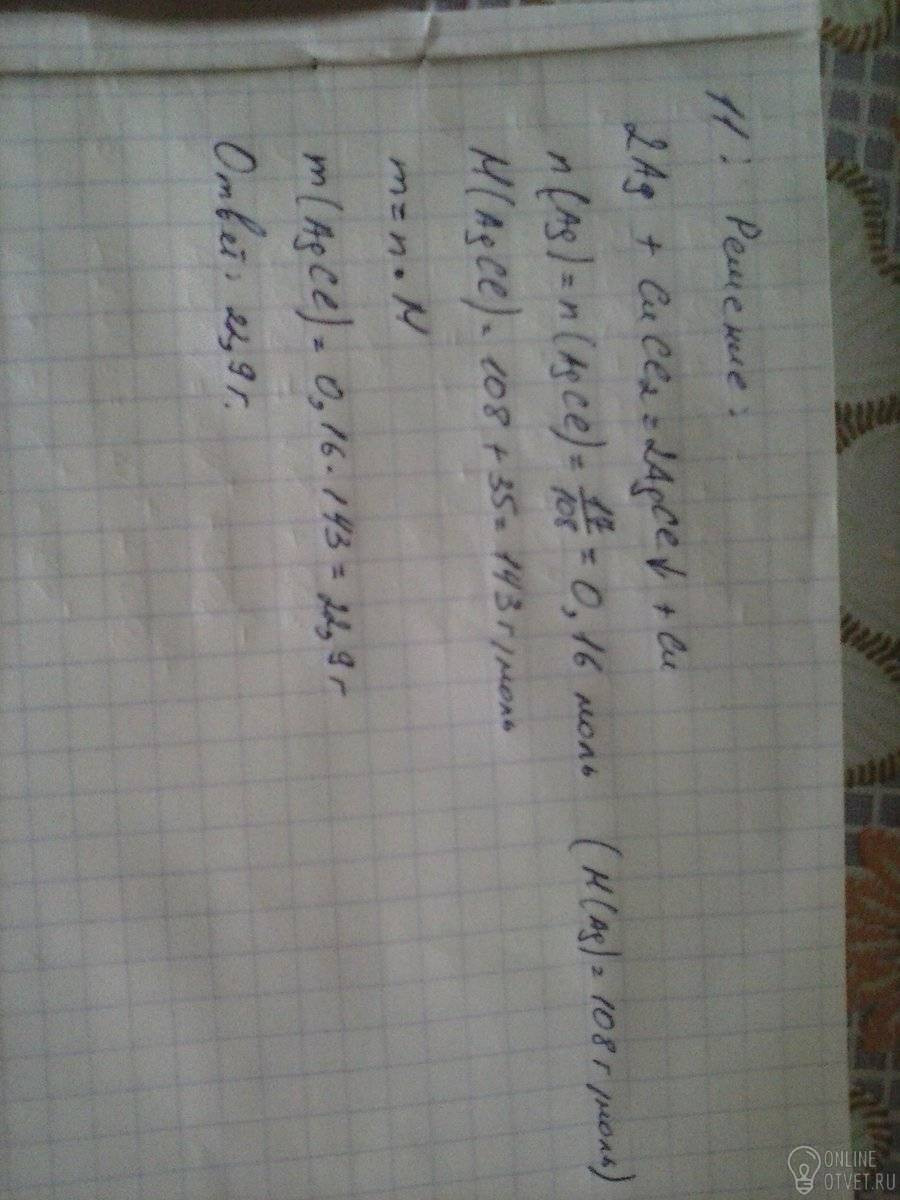 11: Решение:
2Ag + CuCl₂ = 2AgCl↓ + Cu
n(Ag) = n(AgCl) = 17/108 = 0,16 моль (M(Ag) = 108 г/моль)
M(AgCl) = 108 + 35 = 143 г/моль
m = n · M
m(AgCl) = 0,16 · 143 = 22,9 г
Ответ: 22,9 г.
ONLINE
OTVET.RU